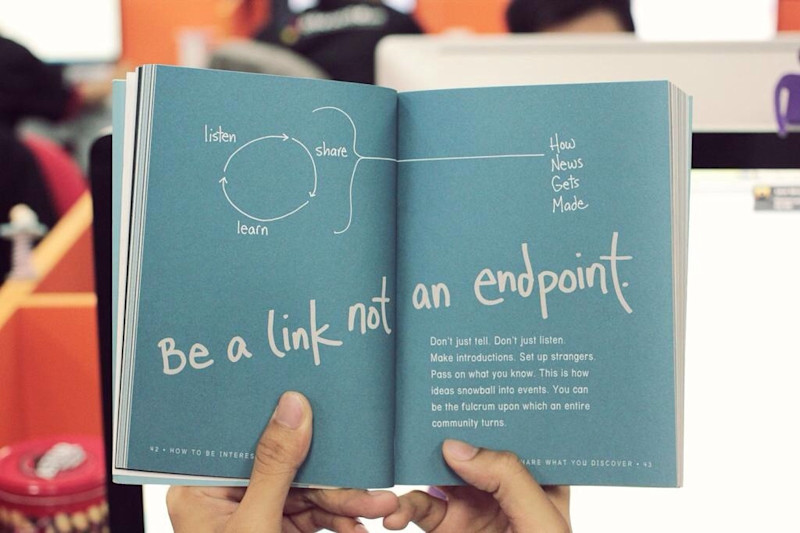 listen
share
learn
How
News
Gets
Made
Be a link not an endpoint.
Don't just tell. Don't just listen.
Make introductions. Set up strangers.
Pass on what you know. This is how
ideas snowball into events. You can
be the fulcrum upon which an entire
community turns.
42 • HOW TO BE
WHAT YOU DISCOVER • 43